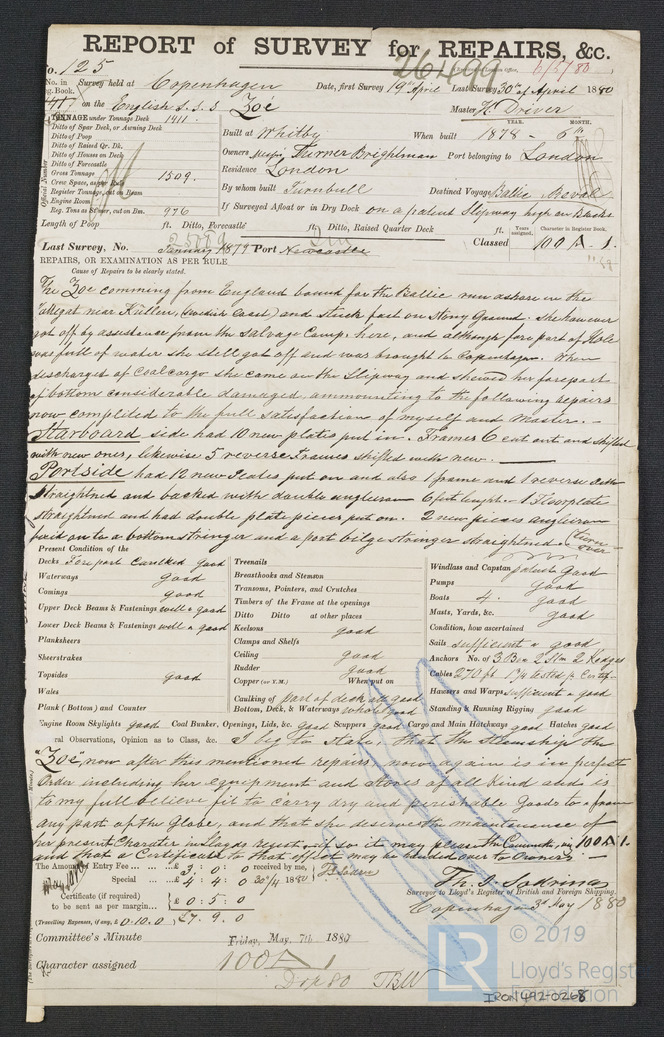 REPORT of SURVEY for REPAIRS, &c.
26499
6/5/80
No. 125
No. in Survey held at Copenhagen Date, first Survey 19 April Last Survey 30th of April 1880
Reg. Book.
on the English S.S.S Zoë Master H Driver
TONNAGE under Tonnage Deck 1411.
Ditto of Spar Deck, or Awning Deck
Ditto of Poop
Ditto of Raised Qr. Dk.
Ditto of Houses on Deck
Ditto of Forecastle
Gross Tonnage 1509.
Crew Space, as per Rule
Register Tonnage, cut on Beam
Engine Room
Reg. Tons as Steamer, cut on Bm. 976
Official Number
YEAR. MONTH.
Built at Whitby When built 1878 - 6th
Owners Messrs Turner Brightman Port belonging to London
Residence London
By whom built Turnbull Destined Voyage Baltic Reval
If Surveyed Afloat or in Dry Dock on a patent Slipway high on Blocks
Length of Poop ft. Ditto, Forecastle ft. Ditto, Raised Quarter Deck ft.
Last Survey, No. January 1879 Port Newcastle
Classed Years assigned. Character in Register Book. 100 A - 1.
REPAIRS, OR EXAMINATION AS PER RULE
Cause of Repairs to be clearly stated.
The Zoë comming from England bound for the Baltic run ashore in the
Cattegat near Kullen, (Swedish Coast) and stuck fast on Stony Ground. she however
got off by assistance from the Salvage Comp. here, and although fore part of Hole
was full of water she still got off and was brought to Copenhagen. When
discharged of Coalcargo she came on the Slipway and shewed her forepart
of bottom considerable damaged, ammounting to the following repairs
now complited to the full satisfaction of myself and Master. -
Starboard side had 10 new plates put in. Frames 6 cut out and shifted
with new ones, likewise 5 reverse Frames shifted with new.
Portside had 12 new Plates put on and also 1 frame and 1 reverse
straightned and backed with double angleiron 6 feet length. - 1 Floorplate
straightned and had double plate pieces put on. 2 new pieces angleiron
laid on to a bottomstringer and a port bilge stringer straightned - (turn over
Present Condition of the
Decks Forepart Caulked good
Waterways good
Comings good
Upper Deck Beams & Fastenings well & good
Lower Deck Beams & Fastenings well & good
Planksheers
Sheerstrakes
Topsides good
Wales
Plank (Bottom) and Counter
Treenails
Breasthooks and Stemson
Transoms, Pointers, and Crutches
Timbers of the Frame at the openings
Ditto Ditto at other places
Keelsons good
Clamps and Shelfs
Ceiling good
Rudder good
Copper (or Y.M.) When put on
Caulking of part of deck all good
Bottom, Deck, & Waterways whole good
Windlass and Capstan patent Good
Pumps good
Boats 4. good
Masts, Yards, &c. good
Condition, how ascertained
Sails sufficient & good
Anchors No. of 3 Bow 2 Stm 2 Kedges
Cables 270 ft 1 1/16 tested p. Certif.
Hawsers and Warps sufficient & good
Standing & Running Rigging good
Engine Room Skylights good Coal Bunker, Openings, Lids, &c. good Scuppers good Cargo and Main Hatchways good Hatches good
General Observations, Opinion as to Class, &c. I beg to state, that the Steamship the
"Zoë" now after this mentioned repairs, now again is in perfect
Order including her equipment and Stores of all Kind and is
to my full believe fit to carry dry and perishable Goods to & from
any part of the Globe, and that she deserve the maintenance of
her present Charater in Lloyds regist. if so it may please the Committe, viz 100 A 1.
and that a Certificate to that effect may be handed over to Owners. -
The Amount Entry Fee ... £3 : 0 : 0 received by me,
Special ... £4 : 4 : 0 30/4 1880
Certificate (if required) £0 : 5 : 0
to be sent as per margin...
(Travelling Expenses, if any, £ 0-10.0 £7 . 9 . 0
Surveyor to Lloyd's Register of British and Foreign Shipping.
Copenhagen 3rd May 1880
Committee's Minute Friday, May, 7th 1880
Character assigned 100 A 1
TBW
© 2019
LR
Lloyd's Regist
Foundation
IRON492-0268